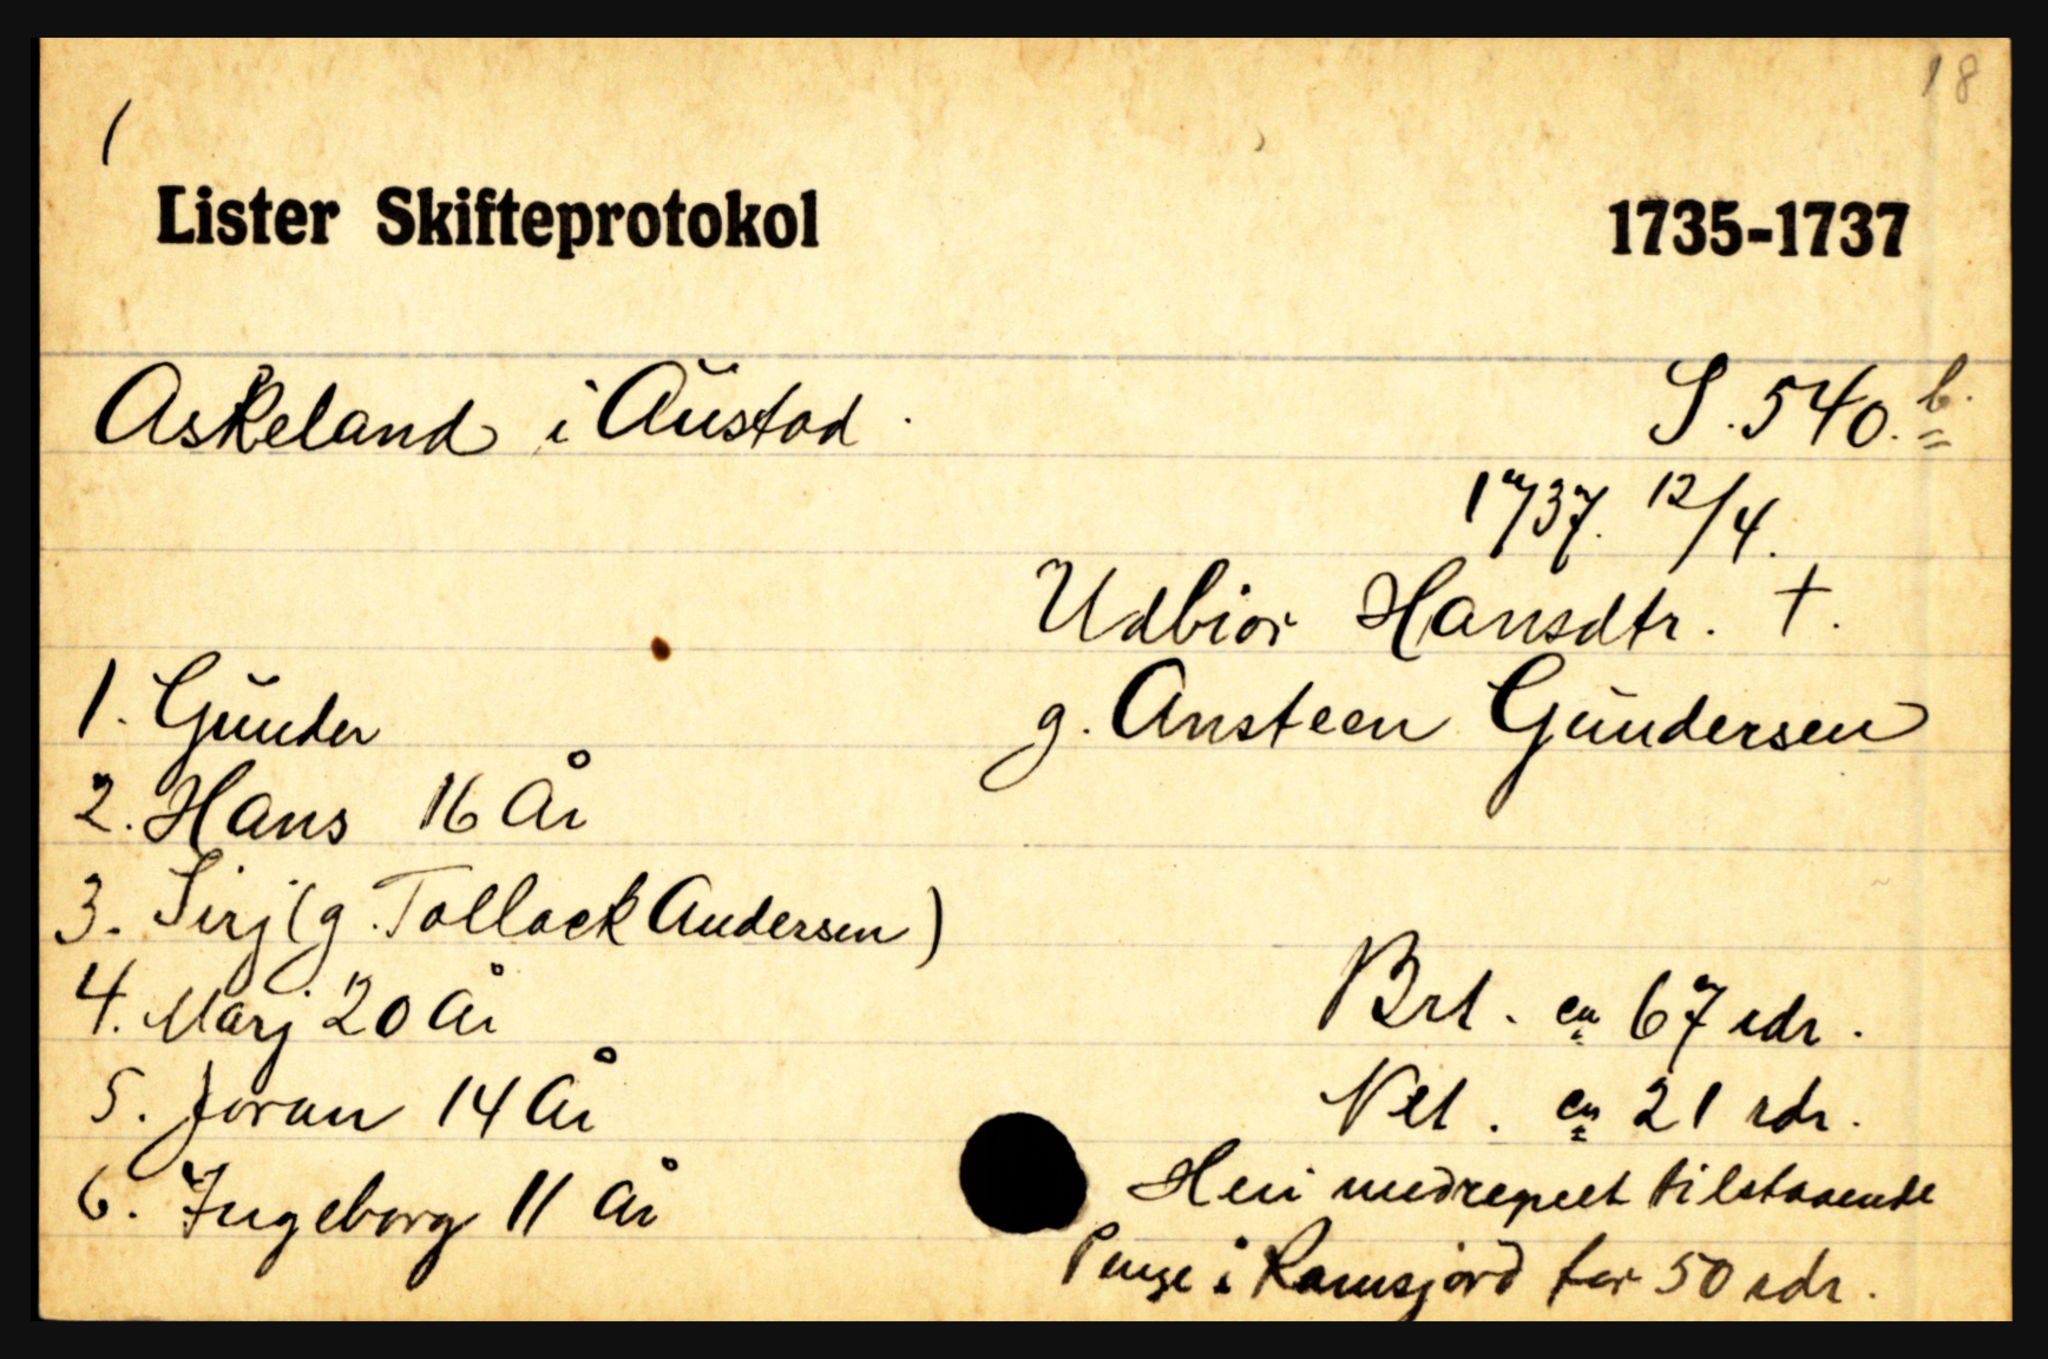 18
1
Lister Skifteprotokol 1735-1737
Askeland i Austad. S. 540. b.
1737. 12/4.
Udbior Hansdtr. †.
1. Gunder g. Ansteen Gundersen
2. Hans 16 År
3. Sirj (g. Tollack Andersen)
4. Marj 20 År Brt. ca 67 rdr.
5. Joran 14 År Net. ca 21 rdr.
6. Ingeborg 11 År Heri medregnet tilstaaende
Penge i Ramsjord for 50 rdr.